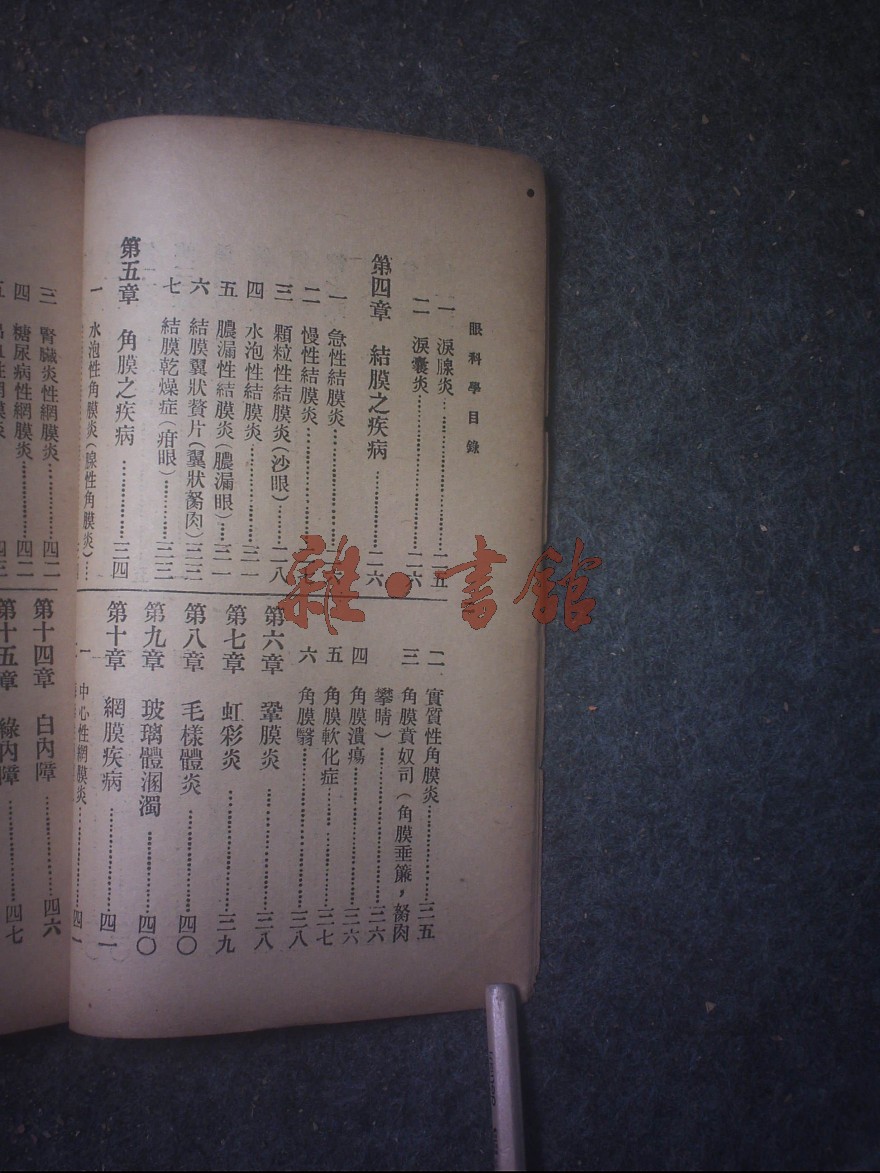 眼科學目錄
一 淚腺炎…………二五
二 淚囊炎…………二六
第四章 結膜之疾病…………二六
一 急性結膜炎…………
二 慢性結膜炎…………
三 顆粒性結膜炎(沙眼)……二八
四 水泡性結膜炎…………三一
五 膿漏性結膜炎(膿漏眼)……三一
六 結膜翼狀贅片(翼狀胬肉)三三
七 結膜乾燥症(疳眼)…………三三
第五章 角膜之疾病…………三四
一 水泡性角膜炎(腺性角膜炎)…
二 實質性角膜炎…………三五
三 角膜賁奴司(角膜垂簾,胬肉
攀睛)…………三六
四 角膜潰瘍…………三六
五 角膜軟化症…………三七
六 角膜翳…………三八
第六章 鞏膜炎…………三八
第七章 虹彩炎…………三九
第八章 毛樣體炎…………四〇
第九章 玻璃體溷濁…………四〇
第十章 網膜疾病…………四一
一 中心性網膜炎…………四一
三 腎臟炎性網膜炎…………四二
四 糖尿病性網膜炎…………四二
五
四三
第十四章 白內障…………四六
第十五章 綠內障…………四七
雜·書館